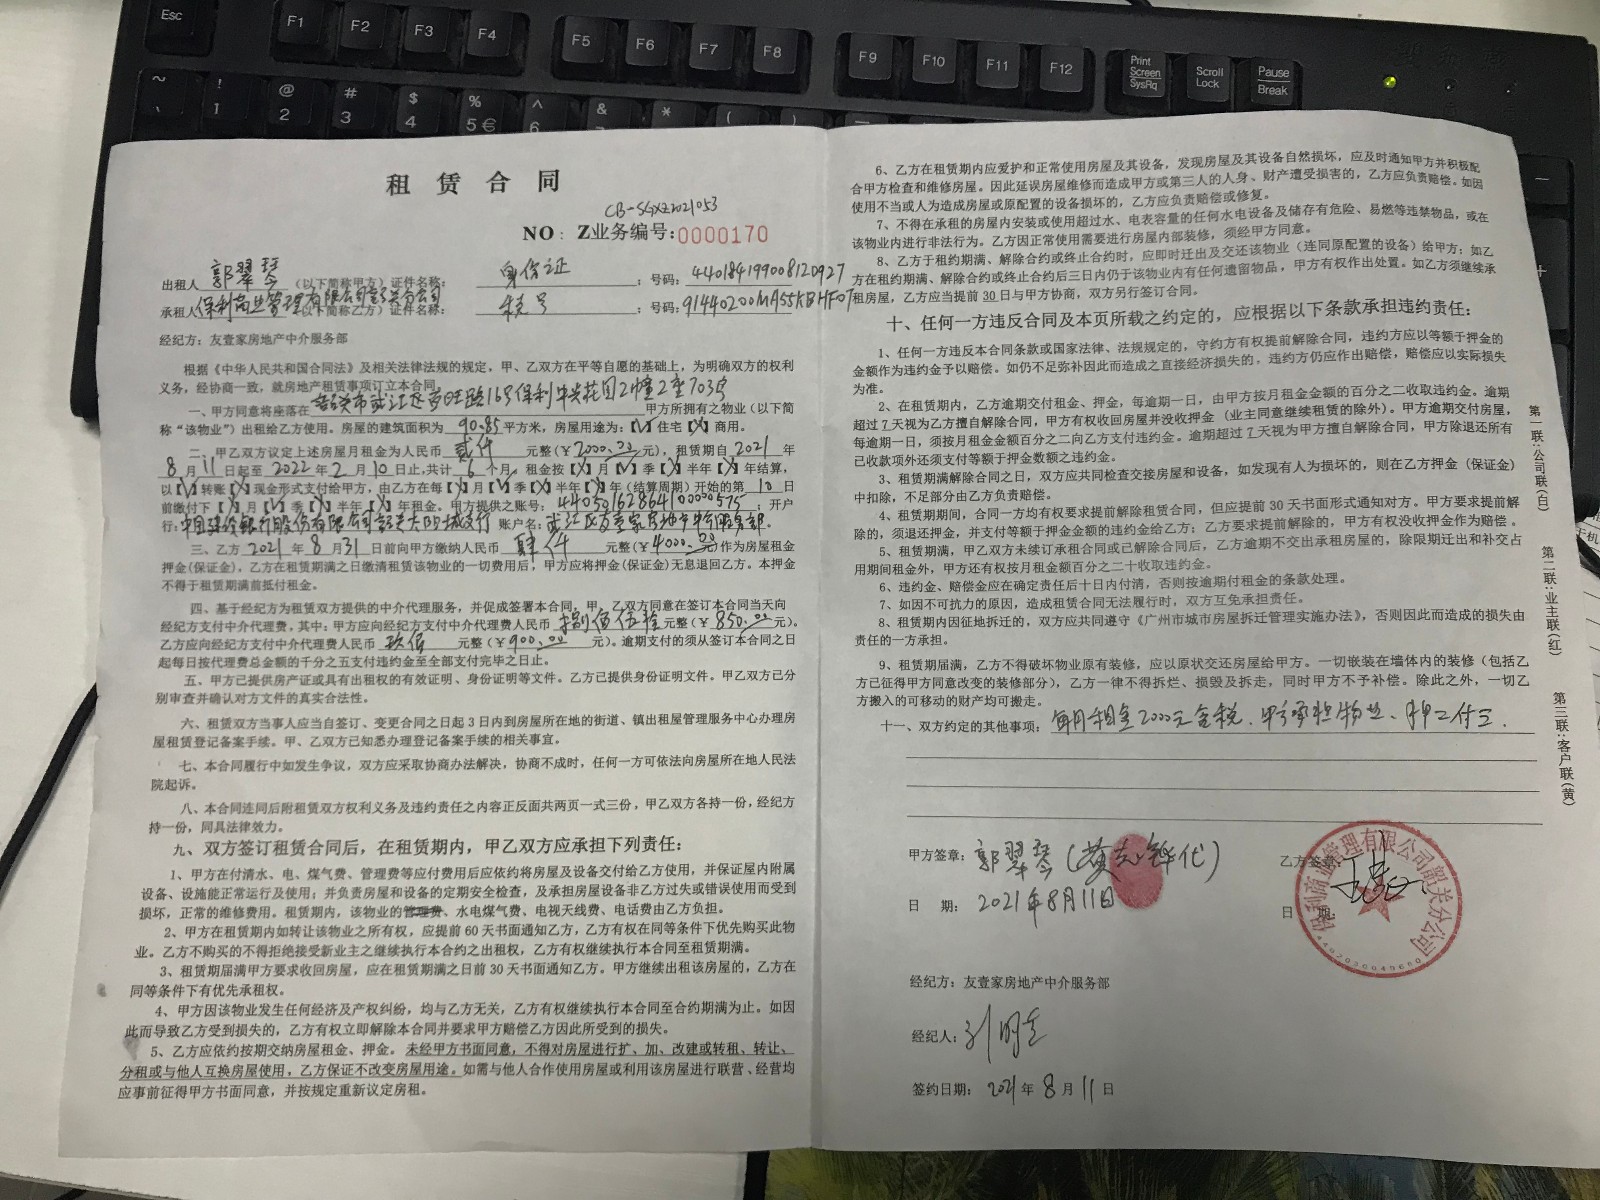 Esc
F1
F2
F3
F4
F5
F6
F7
F8
F9
F10
F11
F12
Print
Screen
SysRq
Scroll
Lock
Pause
Break
~
!
1
@
2
#
3
$
4
%
5 €
^
6
&
*
(
)
租 赁 合 同
CB-SGXZ2021053
NO：Z业务编号:0000170
出租人 郭翠琴 （以下简称甲方）证件名称： 身份证 ；号码：440184199008120927
承租人 保利商业管理有限公司韶关分公司 （以下简称乙方）证件名称： 税号 ；号码：91440200MA55KBHF0T
经纪方：友壹家房地产中介服务部
根据《中华人民共和国合同法》及相关法律法规的规定，甲、乙双方在平等自愿的基础上，为明确双方的权利
义务，经协商一致，就房地产租赁事项订立本合同。
一、甲方同意将座落在 韶关市武江区芗旺路16号保利中央花园2幢2座703房 甲方所拥有之物业（以下简
称“该物业”）出租给乙方使用。房屋的建筑面积为 90.85 平方米，房屋用途为：【√】住宅【X】商用。
二、甲乙双方议定上述房屋月租金为人民币 贰仟 元整（¥2000.00元），租赁期自 2021 年
8 月 11 日起至 2022 年 2 月 10 日止，共计 6 个月。租金按【X】月【√】季【X】半年【X】年结算，
以【√】转账【X】现金形式支付给甲方，由乙方在每【X】月【√】季【X】半年【X】年（结算周期）开始的第 10 日
前缴付下【X】月【√】季【X】半年【X】年租金，甲方提供之账号：44050162864100000575；开户
行：中国建设银行股份有限公司韶关大阳城支行 账户名：武江区友壹家房地产中介服务部。
三、乙方 2021 年 8 月 31 日前向甲方缴纳人民币 肆仟 元整（¥4000.00元）作为房屋租金
押金(保证金)，乙方在租赁期满之日缴清租赁该物业的一切费用后，甲方应将押金(保证金)无息退回乙方。本押金
不得于租赁期满前抵付租金。
四、基于经纪方为租赁双方提供的中介代理服务，并促成签署本合同，甲、乙双方同意在签订本合同当天向
经纪方支付中介代理费，其中：甲方应向经纪方支付中介代理费人民币 捌佰伍拾 元整（¥850.00元）。
乙方应向经纪方支付中介代理费人民币 玖佰 元整（¥900.00 元）。逾期支付的须从签订本合同之日
起每日按代理费总金额的千分之五支付违约金至全部支付完毕之日止。
五、甲方已提供房产证或具有出租权的有效证明、身份证明等文件。乙方已提供身份证明文件。甲乙双方已分
别审查并确认对方文件的真实合法性。
六、租赁双方当事人应当自签订、变更合同之日起 3 日内到房屋所在地的街道、镇出租屋管理服务中心办理房
屋租赁登记备案手续。甲、乙双方已知悉办理登记备案手续的相关事宜。
七、本合同履行中如发生争议，双方应采取协商办法解决，协商不成时，任何一方可依法向房屋所在地人民法
院起诉。
八、本合同连同后附租赁双方权利义务及违约责任之内容正反面共两页一式三份，甲乙双方各持一份，经纪方
持一份，同具法律效力。
九、双方签订租赁合同后，在租赁期内，甲乙双方应承担下列责任：
1、甲方在付清水、电、煤气费、管理费等应付费用后应依约将房屋及设备交付给乙方使用，并保证屋内附属
设备、设施能正常运行及使用；并负责房屋和设备的定期安全检查，及承担房屋设备非乙方过失或错误使用而受到
损坏，正常的维修费用。租赁期内，该物业的管理费、水电煤气费、电视天线费、电话费由乙方负担。
2、甲方在租赁期内如转让该物业之所有权，应提前 60 天书面通知乙方，乙方有权在同等条件下优先购买此物
业。乙方不购买的不得拒绝接受新业主之继续执行本合约之出租权，乙方有权继续执行本合同至租赁期满。
3、租赁期届满甲方要求收回房屋，应在租赁期满之日前 30 天书面通知乙方。甲方继续出租该房屋的，乙方在
同等条件下有优先承租权。
4、甲方因该物业发生任何经济及产权纠纷，均与乙方无关，乙方有权继续执行本合同至合约期满为止。如因
此而导致乙方受到损失的，乙方有权立即解除本合同并要求甲方赔偿乙方因此所受到的损失。
5、乙方应依约按期交纳房屋租金、押金。未经甲方书面同意，不得对房屋进行扩、加、改建或转租、转让、
分租或与他人互换房屋使用，乙方保证不改变房屋用途。如需与他人合作使用房屋或利用该房屋进行联营、经营均
应事前征得甲方书面同意，并按规定重新议定房租。
6、乙方在租赁期内应爱护和正常使用房屋及其设备，发现房屋及其设备自然损坏，应及时通知甲方并积极配
合甲方检查和维修房屋。因此延误房屋维修而造成甲方或第三人的人身、财产遭受损害的，乙方应负责赔偿。如因
使用不当或人为造成房屋或原配置的设备损坏的，乙方应负责赔偿或修复。
7、不得在承租的房屋内安装或使用超过水、电表容量的任何水电设备及储存有危险、易燃等违禁物品，或在
该物业内进行非法行为。乙方因正常使用需要进行房屋内部装修，须经甲方同意。
8、乙方于租约期满、解除合约或终止合约时，应即时迁出及交还该物业（连同原配置的设备）给甲方；如乙
方在租约期满、解除合约或终止合约后三日内仍于该物业内有任何遗留物品，甲方有权作出处置。如乙方须继续承
租房屋，乙方应当提前 30 日与甲方协商，双方另行签订合同。
十、任何一方违反合同及本页所载之约定的，应根据以下条款承担违约责任：
1、任何一方违反本合同条款或国家法律、法规规定的，守约方有权提前解除合同，违约方应以等额于押金的
金额作为违约金予以赔偿。如仍不足弥补因此而造成之直接经济损失的，违约方仍应作出赔偿，赔偿应以实际损失
为准。
2、在租赁期内，乙方逾期交付租金、押金，每逾期一日，由甲方按月租金金额的百分之二收取违约金。逾期
超过 7 天视为乙方擅自解除合同，甲方有权收回房屋并没收押金（业主同意继续租赁的除外）。甲方逾期交付房屋，
每逾期一日，须按月租金金额百分之二向乙方支付违约金。逾期超过 7 天视为甲方擅自解除合同，甲方除退还所有
已收款项外还须支付等额于押金数额之违约金。
3、租赁期满解除合同之日，双方应共同检查交接房屋和设备，如发现有人为损坏的，则在乙方押金（保证金）
中扣除，不足部分由乙方负责赔偿。
4、租赁期期间，合同一方均有权要求解除租赁合同，但应提前 30 天书面形式通知对方。甲方要求提前解
除的，须退还押金，并支付等额于押金金额的违约金给乙方；乙方要求提前解除的，甲方有权没收押金作为赔偿。
5、租赁期满，甲乙双方未续订承租合同或已解除合同后，乙方逾期不交出承租房屋的，除限期迁出和补交占
用期间租金外，甲方还有权按月租金额百分之二十收取违约金。
6、违约金、赔偿金应在确定责任后十日内付清，否则按逾期付租金的条款处理。
7、如因不可抗力的原因，造成租赁合同无法履行时，双方互免承担责任。
8、租赁期内因征地拆迁的，双方应共同遵守《广州市城市房屋拆迁管理实施办法》，否则因此而造成的损失由
责任的一方承担。
9、租赁期届满，乙方不得破坏物业原有装修，应以原状交还房屋给甲方。一切嵌装在墙体内的装修（包括乙
方已征得甲方同意改变的装修部分），乙方一律不得拆烂、损毁及拆走，同时甲方不予补偿。除此之外，一切乙
方搬入的可移动的财产均可搬走。
十一、双方约定的其他事项：每月租金2000元含税、甲方承担物业、押二付三．
甲方签章：郭翠琴（黄志锋代）
日 期：2021年8月11日
乙方签章：
日 期：
保利商业管理有限公司韶关分公司
经纪方：友壹家房地产中介服务部
经纪人：
签约日期：2021年 8 月 11 日
第一联：公司联（白）
第二联：业主联（红）
第三联：客户联（黄）